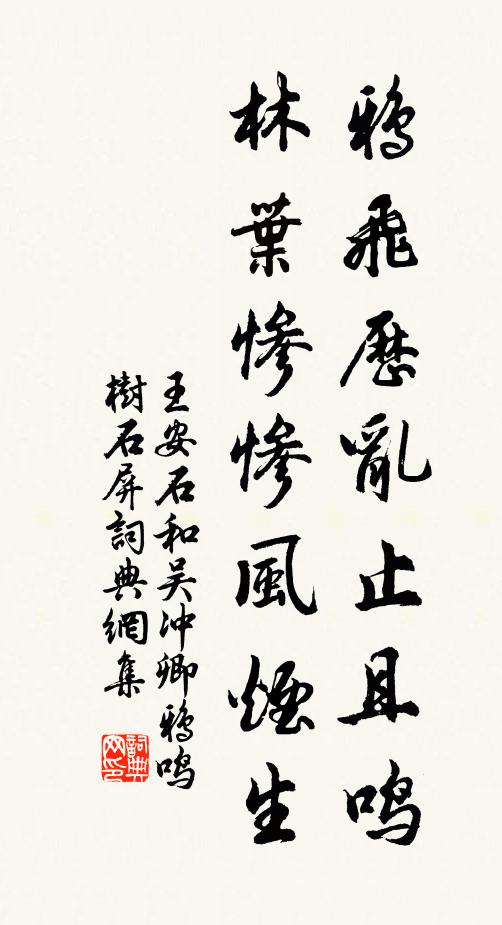 鴉飛歷亂止且鳴
林葉慘慘風煙生
王安石和吴冲卿鴉鳴
樹石屏詞典網集
詞典
网印